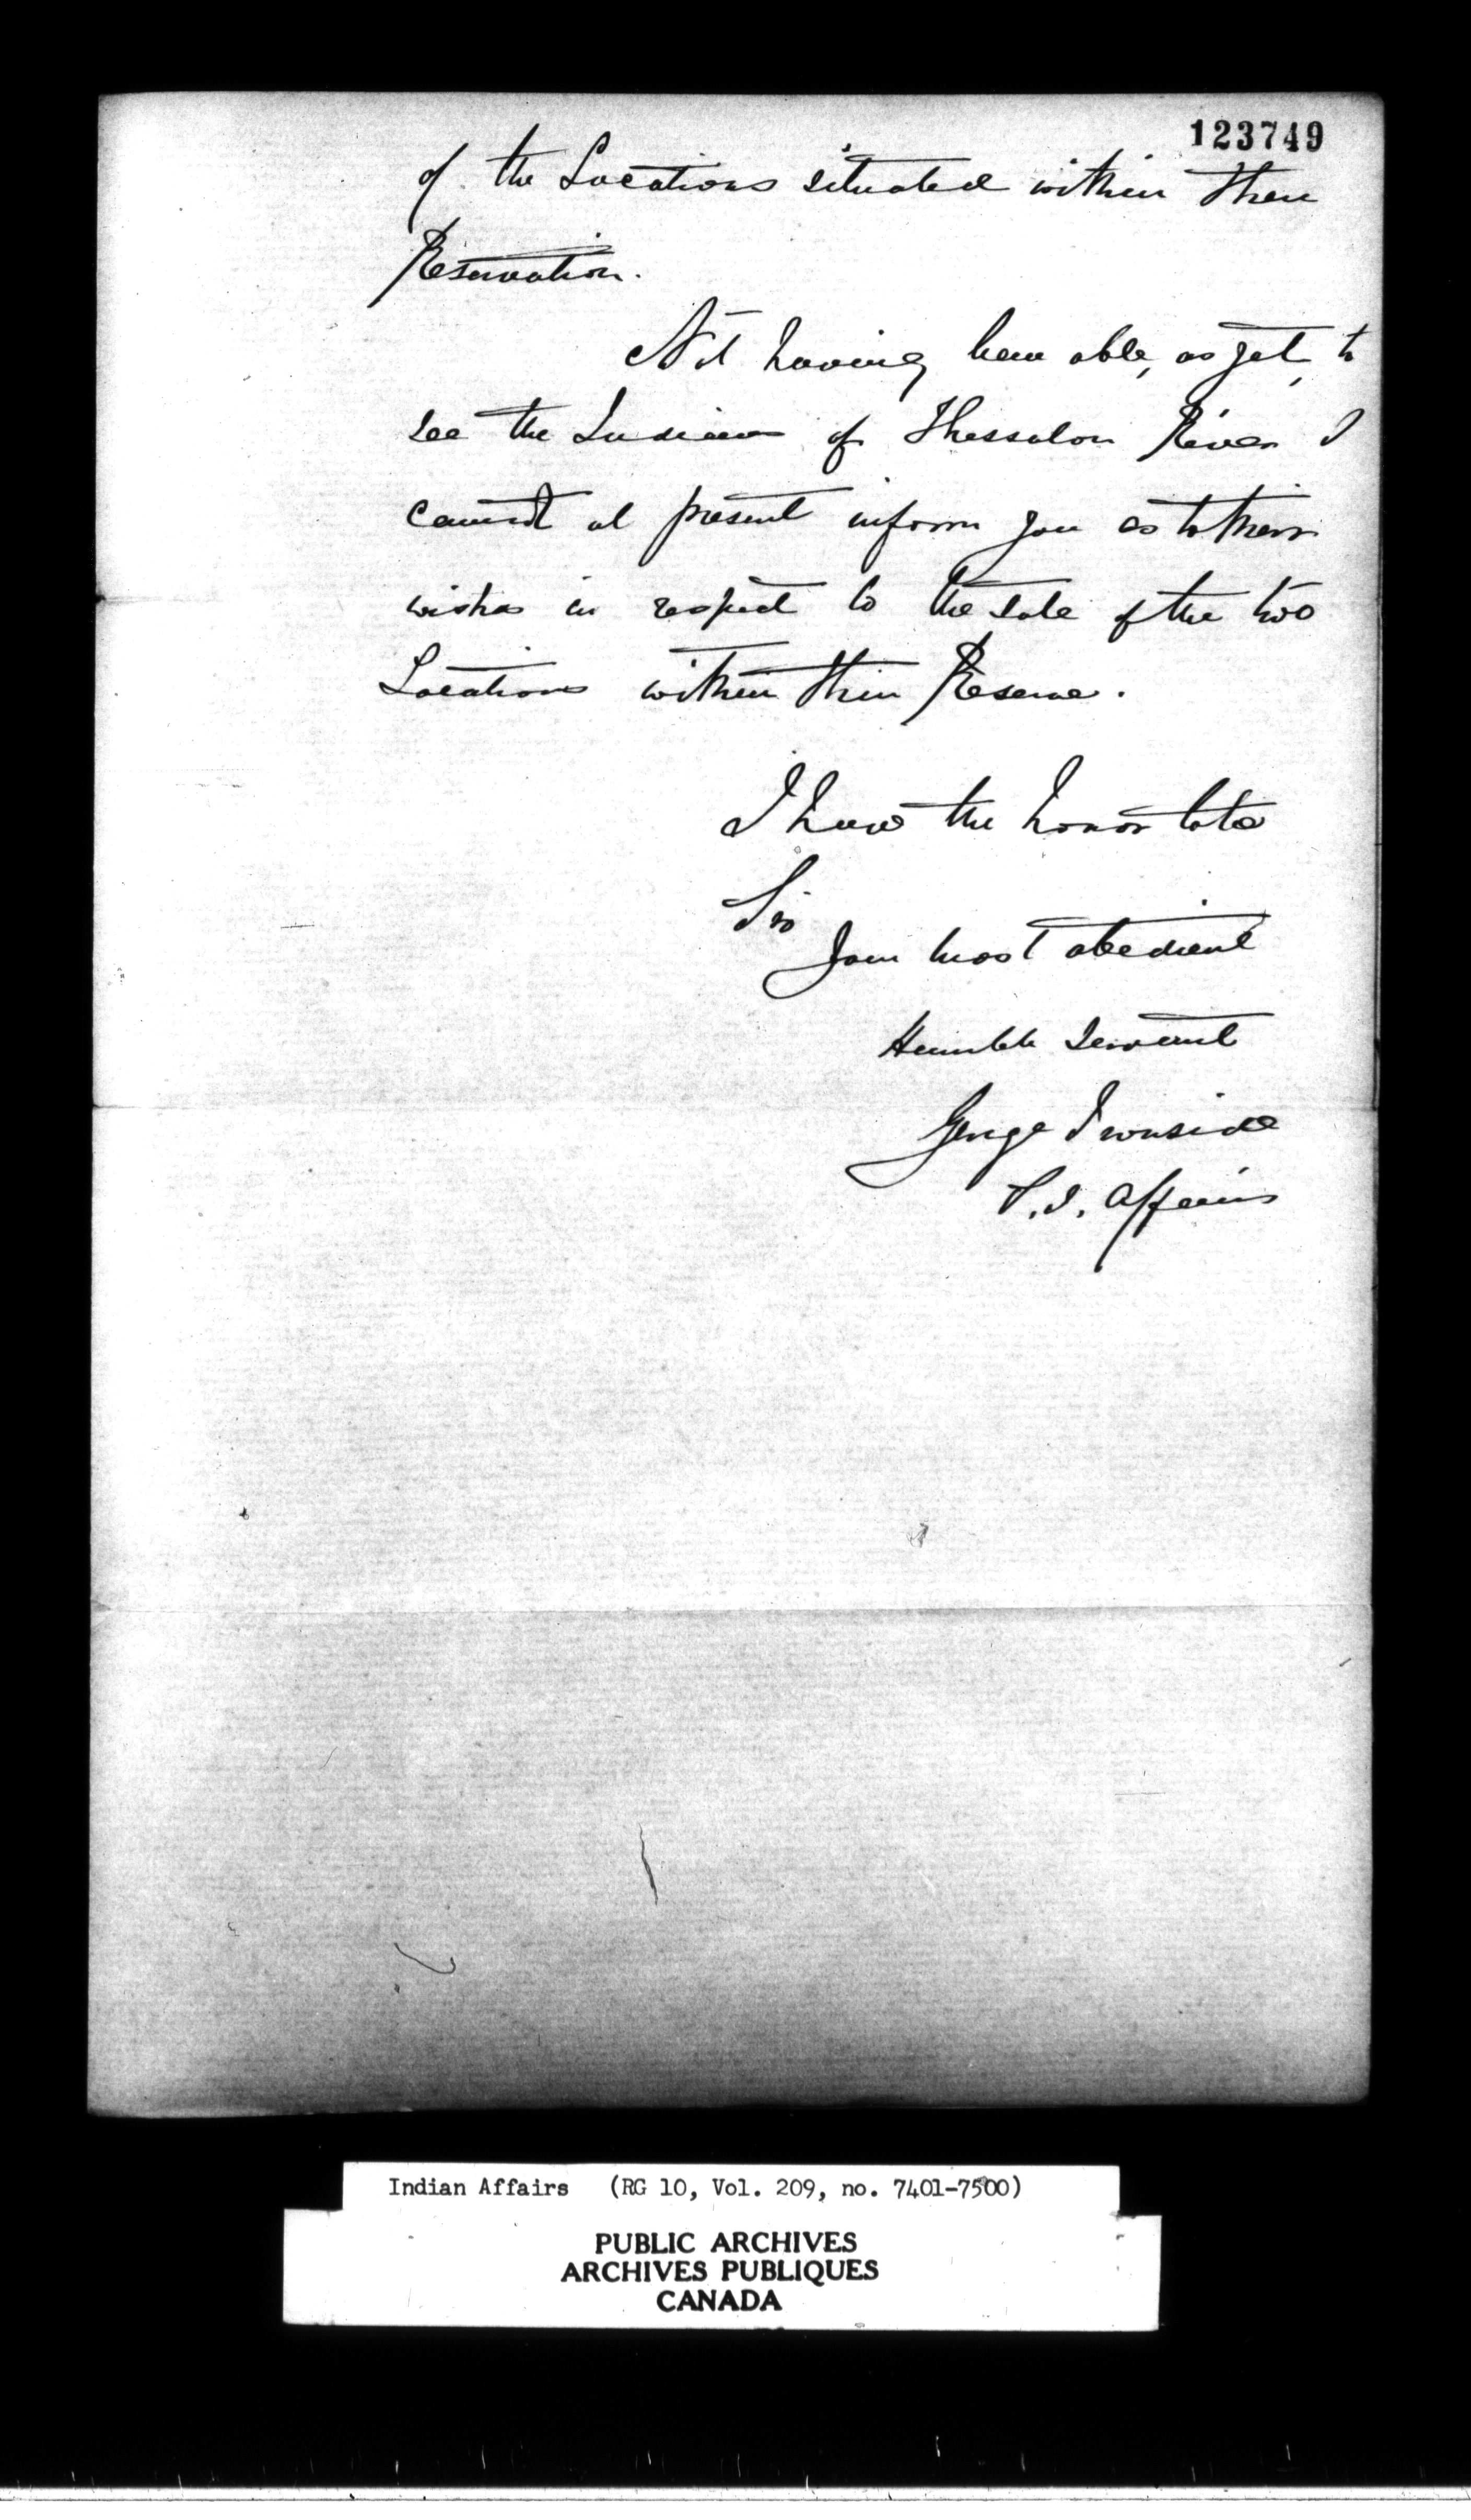 123749
of the Locations situated within their
Reservation.
Not having been able, as yet, to
see the Indians of Thessalon River I
cannot at present inform you as to their
wishes in respect to the sale of the two
Locations within their Reserve.
I have the honor to be
Sir
Your most obedient
Humble Servant
George Ironside
S.I. Affairs
Indian Affairs (RG 10, Vol. 209, no. 7401-7500)
PUBLIC ARCHIVES
ARCHIVES PUBLIQUES
CANADA